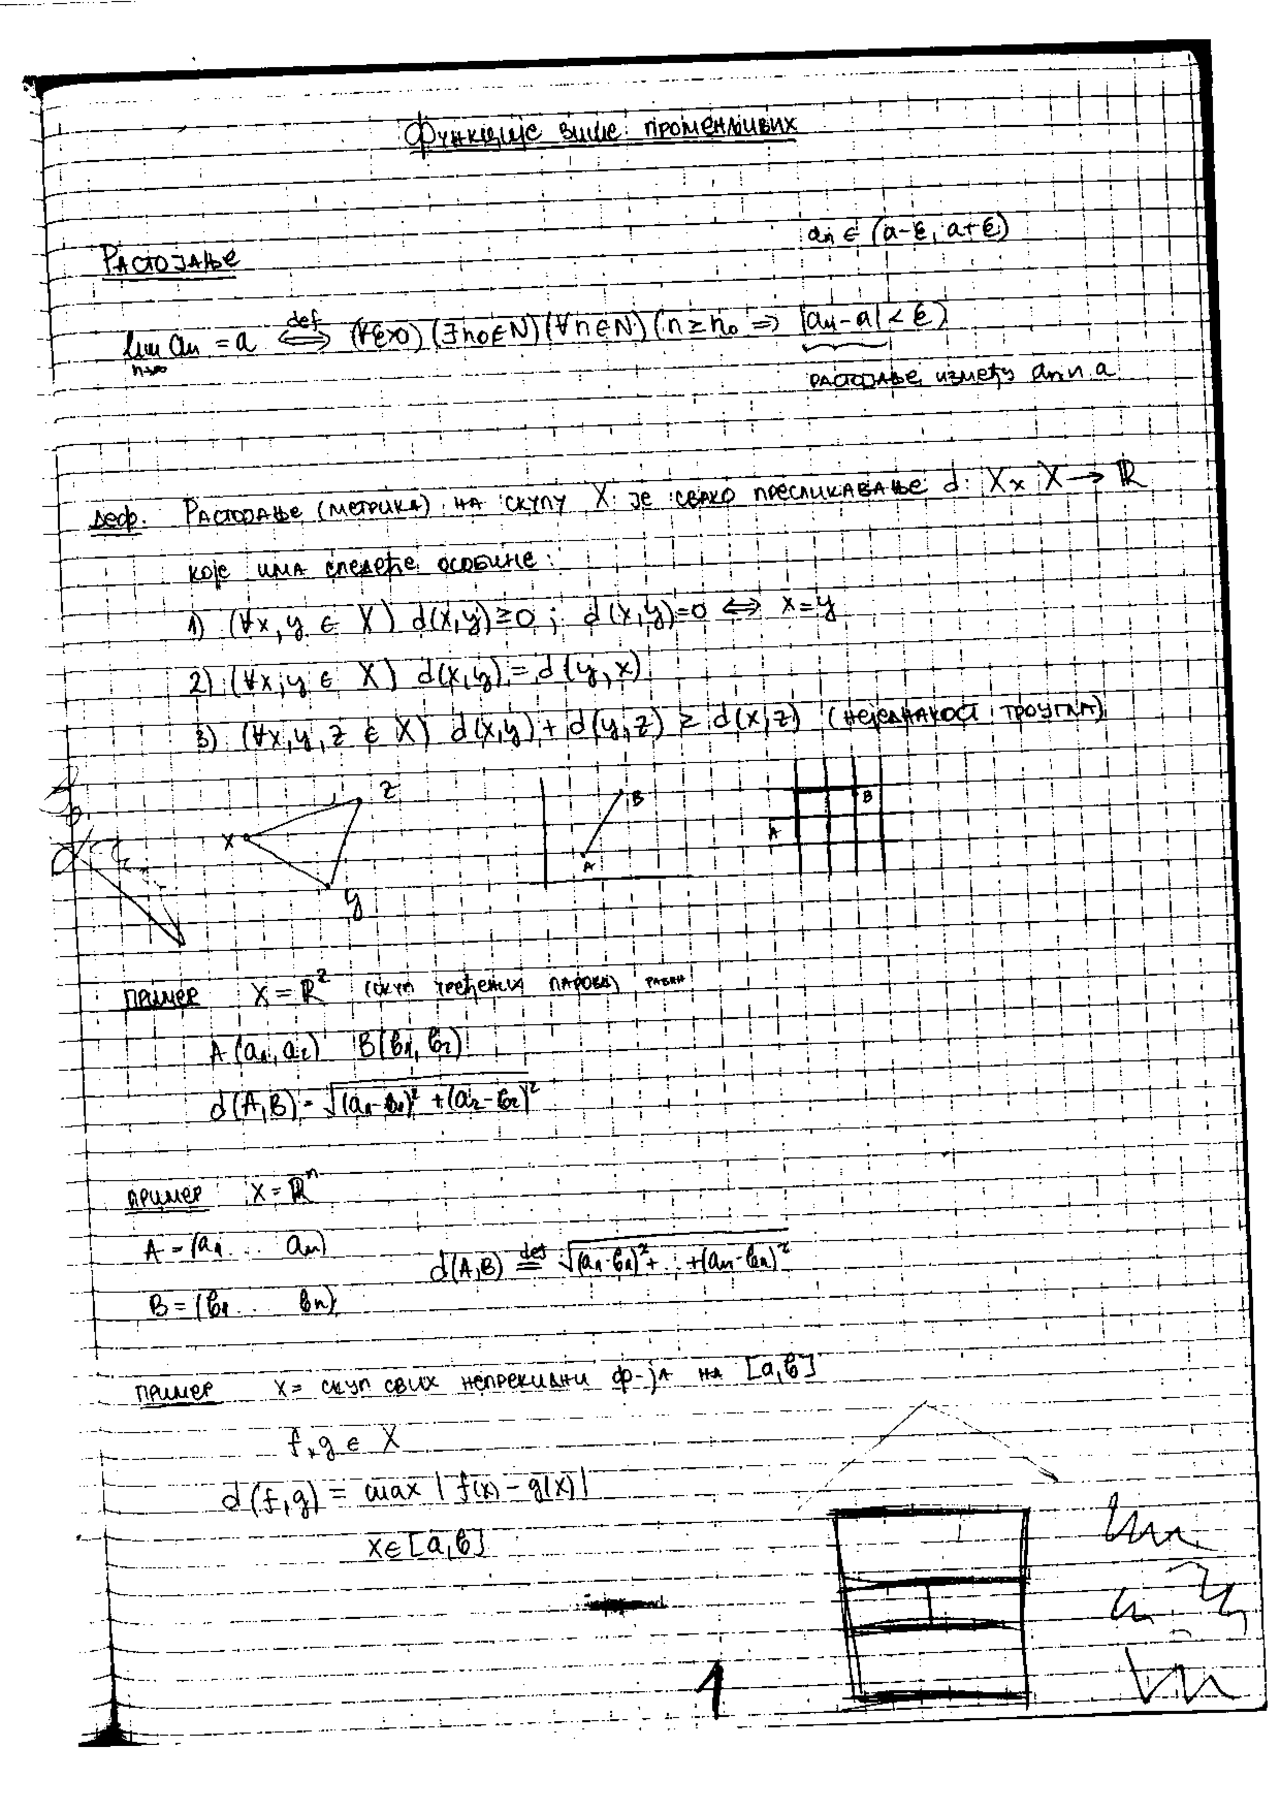 Функције више променљивих
Растојање
aₙ ∈ (a-ε, a+ε)
lim aₙ = a ⟺ def (∀ε>0) (∃n₀∈N) (∀n∈N) (n ≥ n₀ ⇒ |aₙ - a| < ε)
n→∞
растојање између aₙ и a
Деф. Растојање (метрика) на скупу X је свако пресликавање d: X × X → ℝ
које има следеће особине:
1) (∀x, y ∈ X) d(x,y) ≥ 0 ; d(x,y)=0 ⟺ x=y
2) (∀x, y ∈ X) d(x,y) = d(y,x)
3) (∀x, y, z ∈ X) d(x,y) + d(y,z) ≥ d(x,z) (неједнакост троугла)
x z y
A B
A B
Пример X = ℝ² (скуп уређених парова) раван
A(a₁, a₂) B(b₁, b₂)
d(A,B) = √((a₁-b₁)² + (a₂-b₂)²)
Пример X = ℝⁿ
A = (a₁ ... aₙ)
d(A,B) def= √((a₁-b₁)² + ... + (aₙ-bₙ)²)
B = (b₁ ... bₙ)
Пример X = скуп свих непрекидни ф-ја на [a,b]
f, g ∈ X
d(f,g) = max |f(x) - g(x)|
x∈[a,b]
1